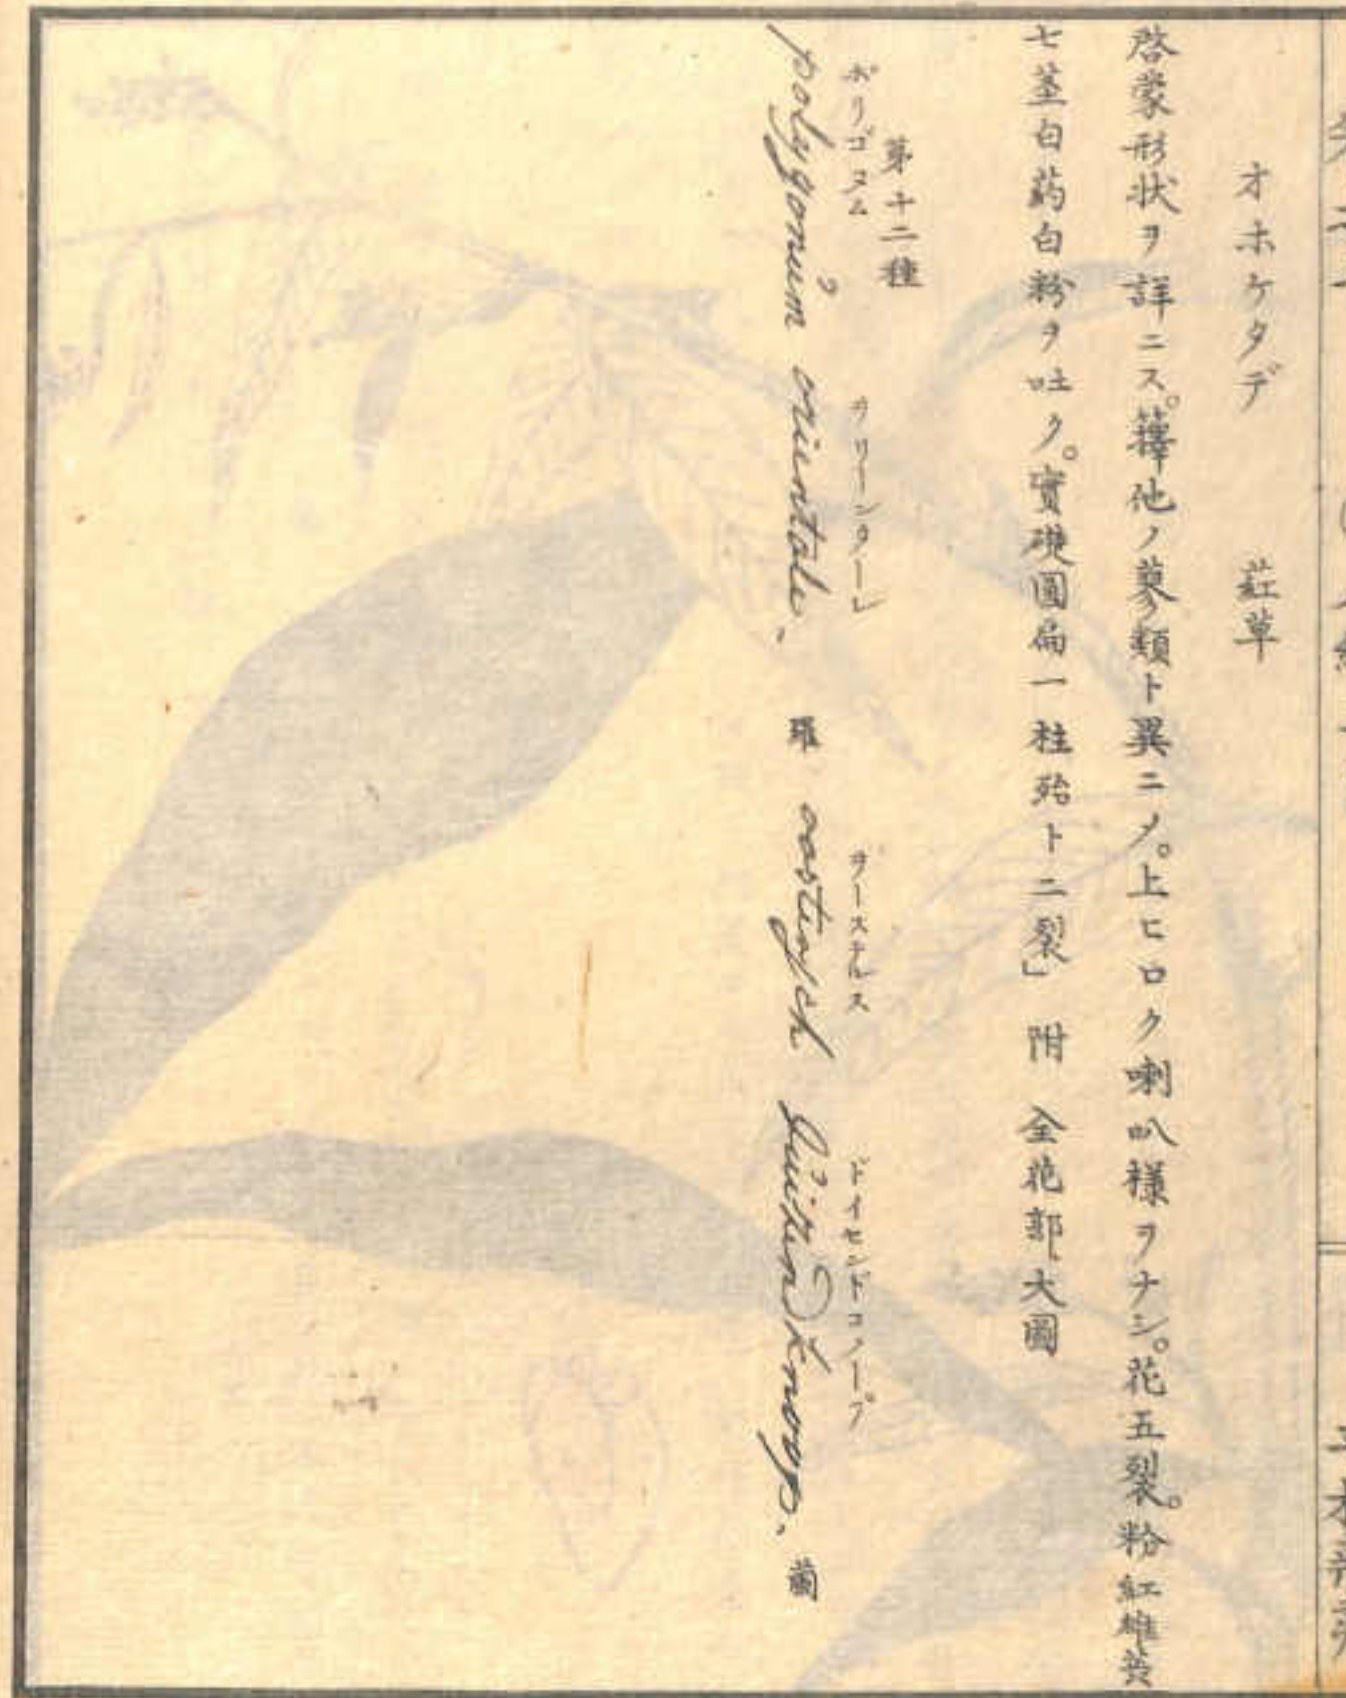 オホケタデ 葒草
啓蒙形状ヲ詳ニス。蘀他ノ蓼類ト異ニメ。上ヒロク喇叭様ヲナシ。花五裂。粉紅雄蕊
七茎白葯白粉ヲ吐ク。實礎圓扁一柱殆ト二裂」 附 全花郭大圖
第十二種
ポリゴヌム ヲリーンターレ ヲーステルス ドイセンドコノープ
polygonum orientale, 羅 oostersch duizendknoop. 蘭